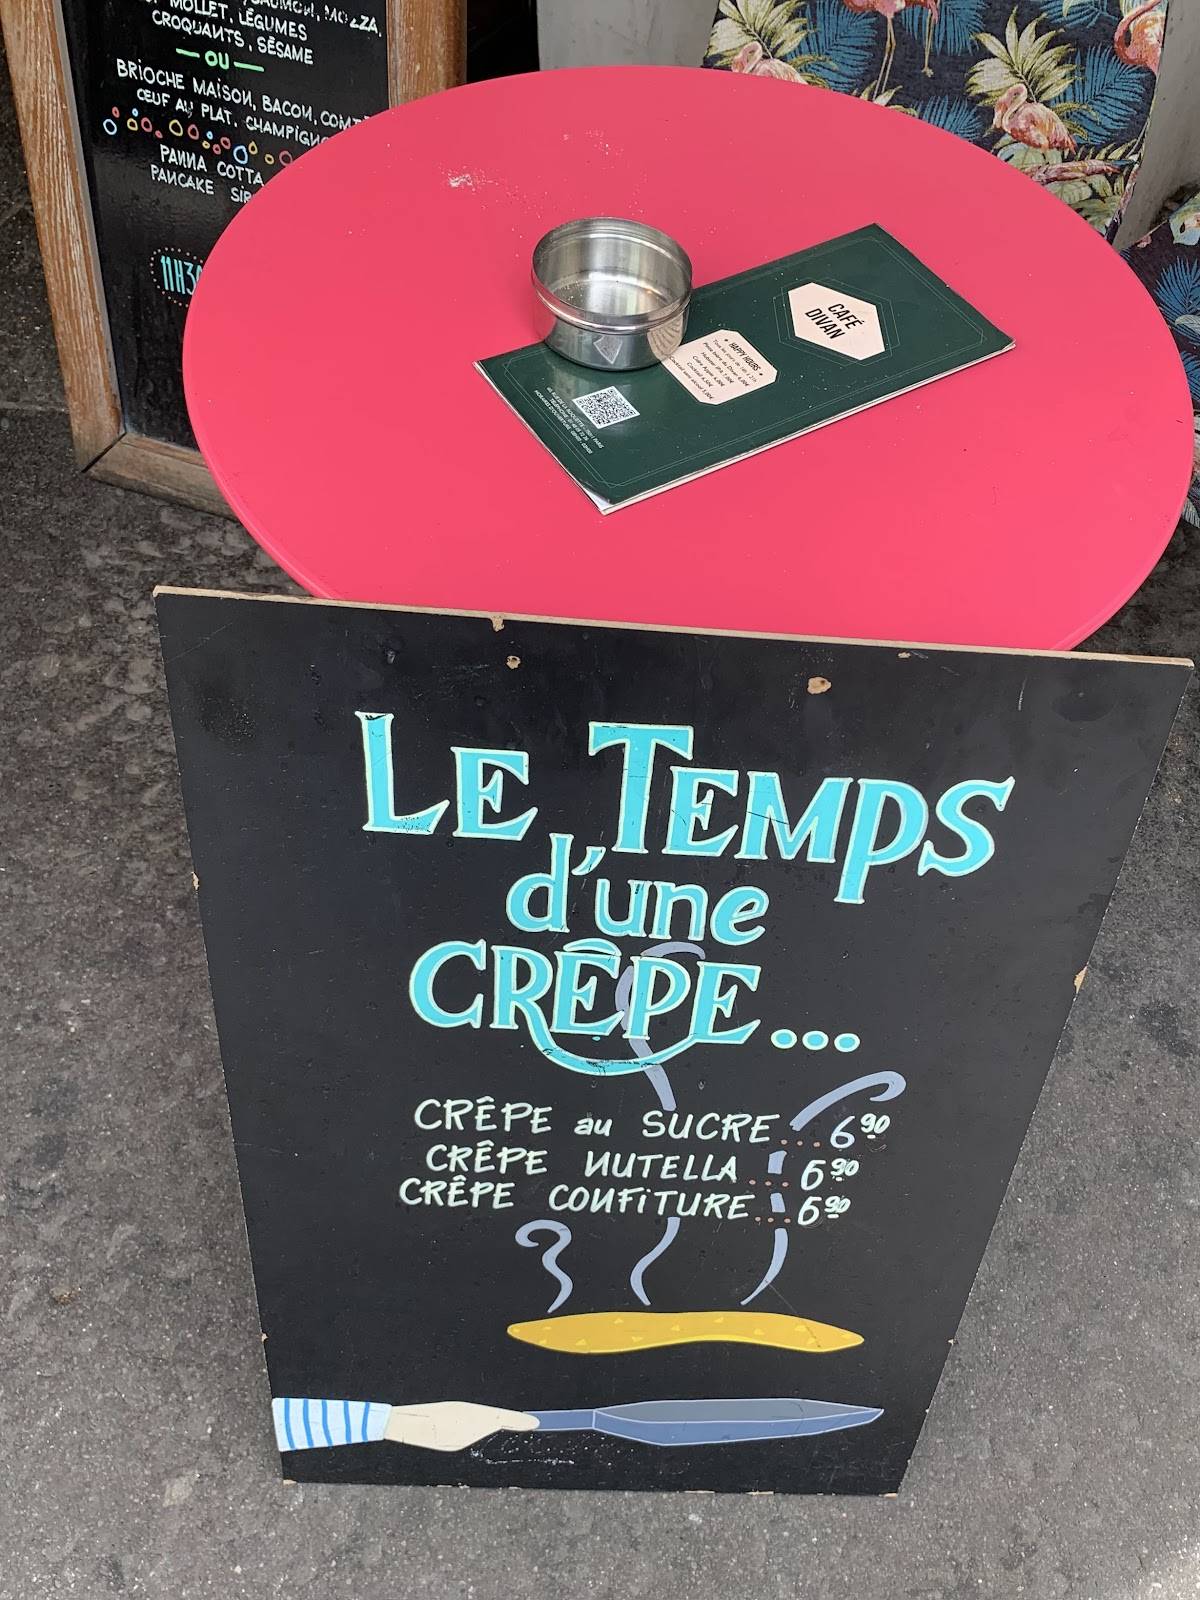 MOLLET, LÉGUMES
CROQUANTS, SÉSAME
OU
BRIOCHE MAISON, BACON,
ŒUF AU PLAT,
PANNA COTTA
PANCAKE
CAFÉ
DIVAN
HAPPY HOURS
LE TEMPS
d'une
CRÊPE...
CRÊPE au SUCRE....6⁹⁰
CRÊPE NUTELLA....6⁹⁰
CRÊPE CONFITURE....6⁹⁰